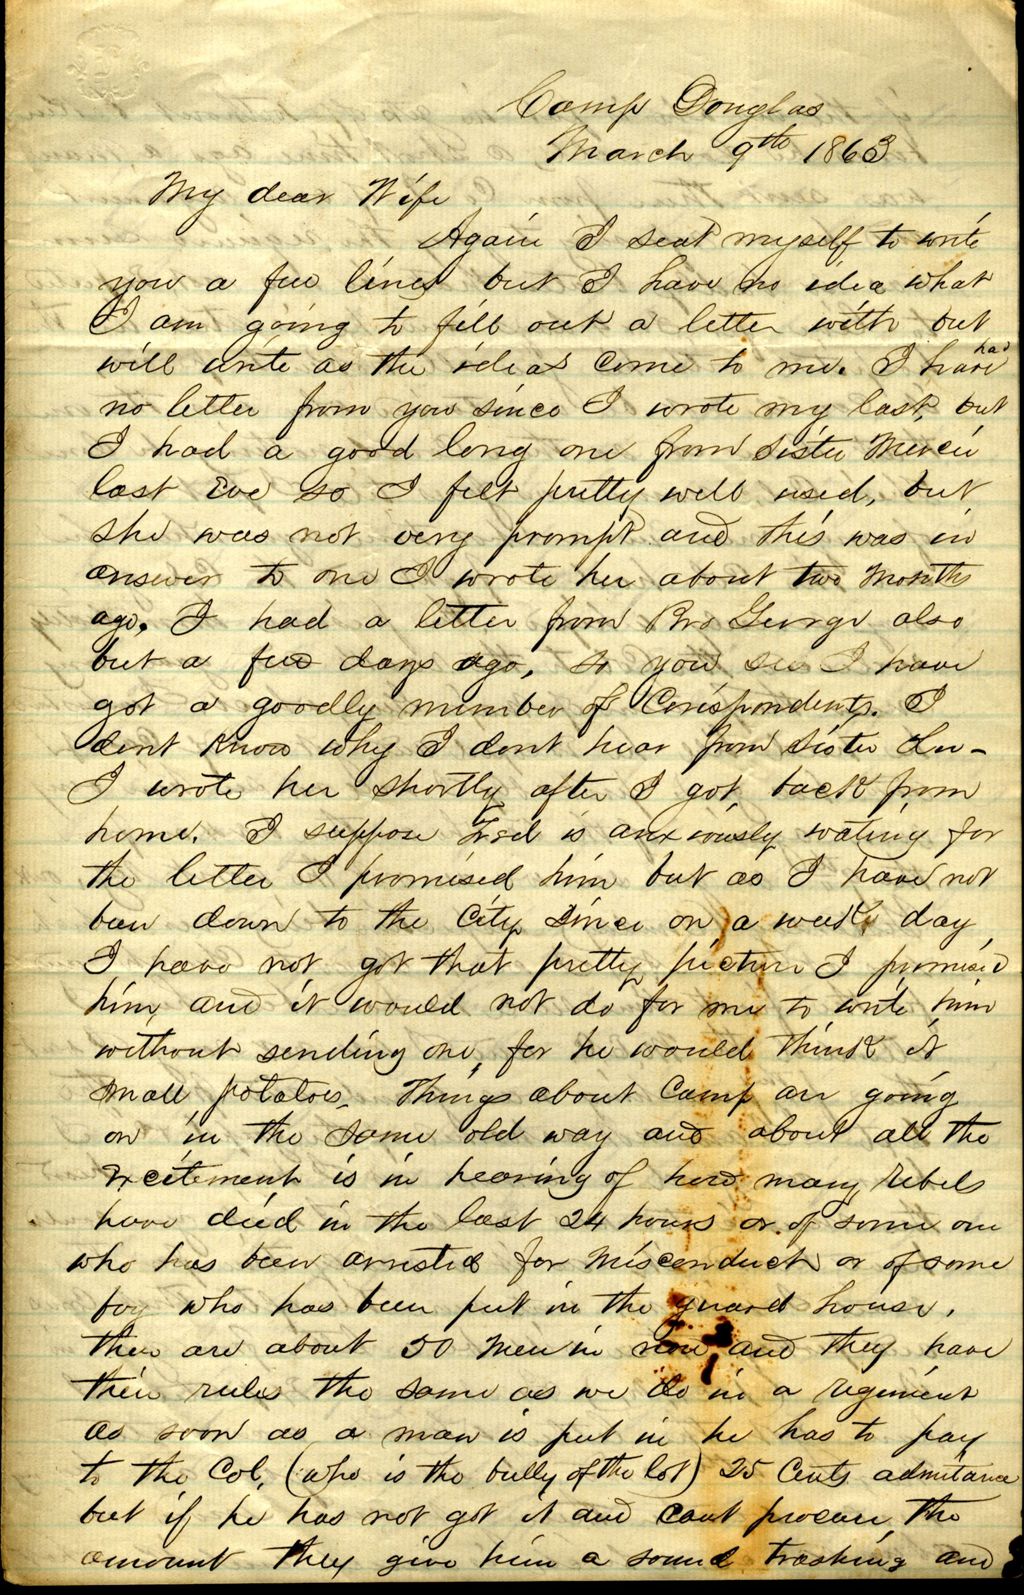 Camp Douglas
March 9th 1863
My dear Wife
Again I seat myself to write
you a few lines but I have no idea what
I am going to fill out a letter with but
will write as the ideas come to me. I have had
no letter from you since I wrote my last, but
I had a good long one from Sister
last Eve so I felt pretty well used, but
she was not very prompt and this was in
answer to one I wrote her about two Months
ago. I had a letter from Bro George also
but a few days ago, so you see I have
got a goodly number of Corispondents. I
dont know why I dont hear from Sister Lu-
I wrote her shortly after I got back from
home. I suppose Fred is anxiously wating for
the letter I promised him but as I have not
been down to the City since on a week day
I have not got that pretty picture I promised
him, and it would not do for me to write him
without sending one, for he would think it
small potatoes. Things about Camp are going
on in the same old way and about all the
excitement is in hearing of how many rebels
have died in the last 24 hours or of some one
who has been arrested for Misconduct or of some
boy who has been put in the guard house.
there are about 50 Men in now and they have
their rules the same as we do in a regiment
as soon as a man is put in he has to pay
to the Col. (who is the bully of the lot) 25 Cents admitance
but if he has not got it and cant procure the
amount they give him a sound trashing and